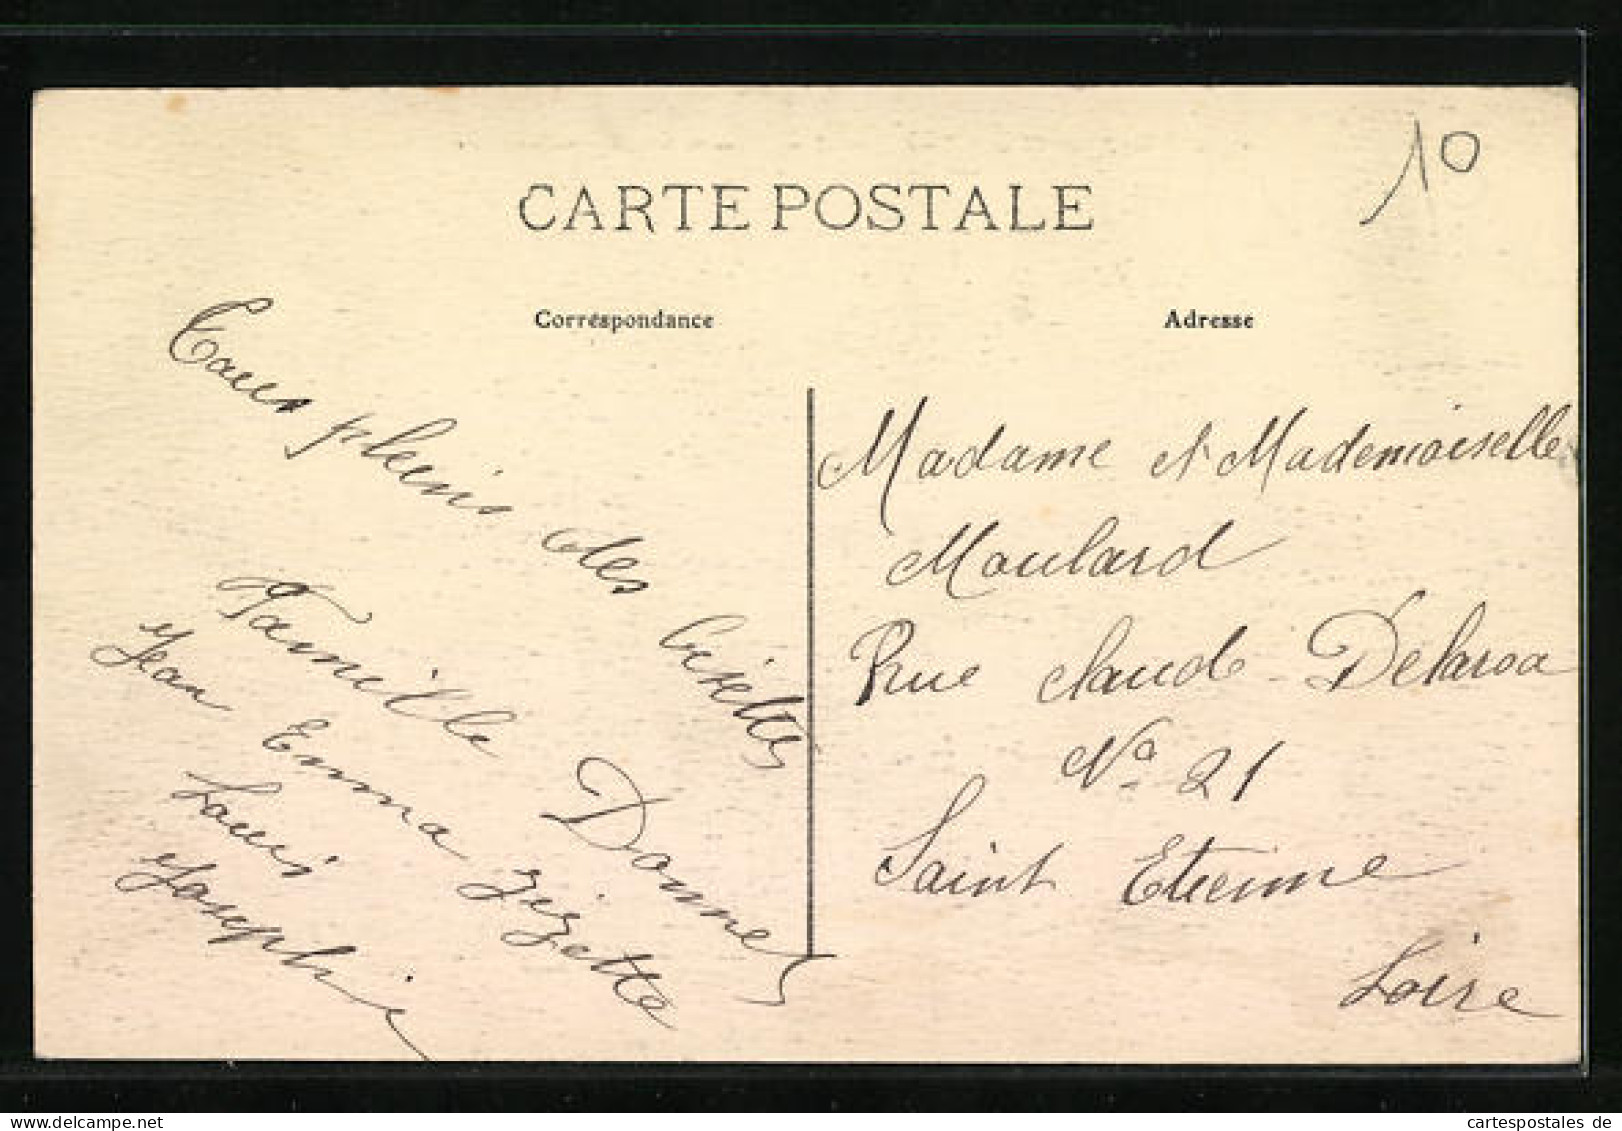 CARTE POSTALE
10
Correspondance
Adresse
Tous pleins des bisettes
Famille Donne
Jean Emma Zizette
Louis
Josephie
Madame et Mademoiselle
Moulard
Rue Claude Delaroa
No 21
Saint Etienne
Loire
cartespostales de